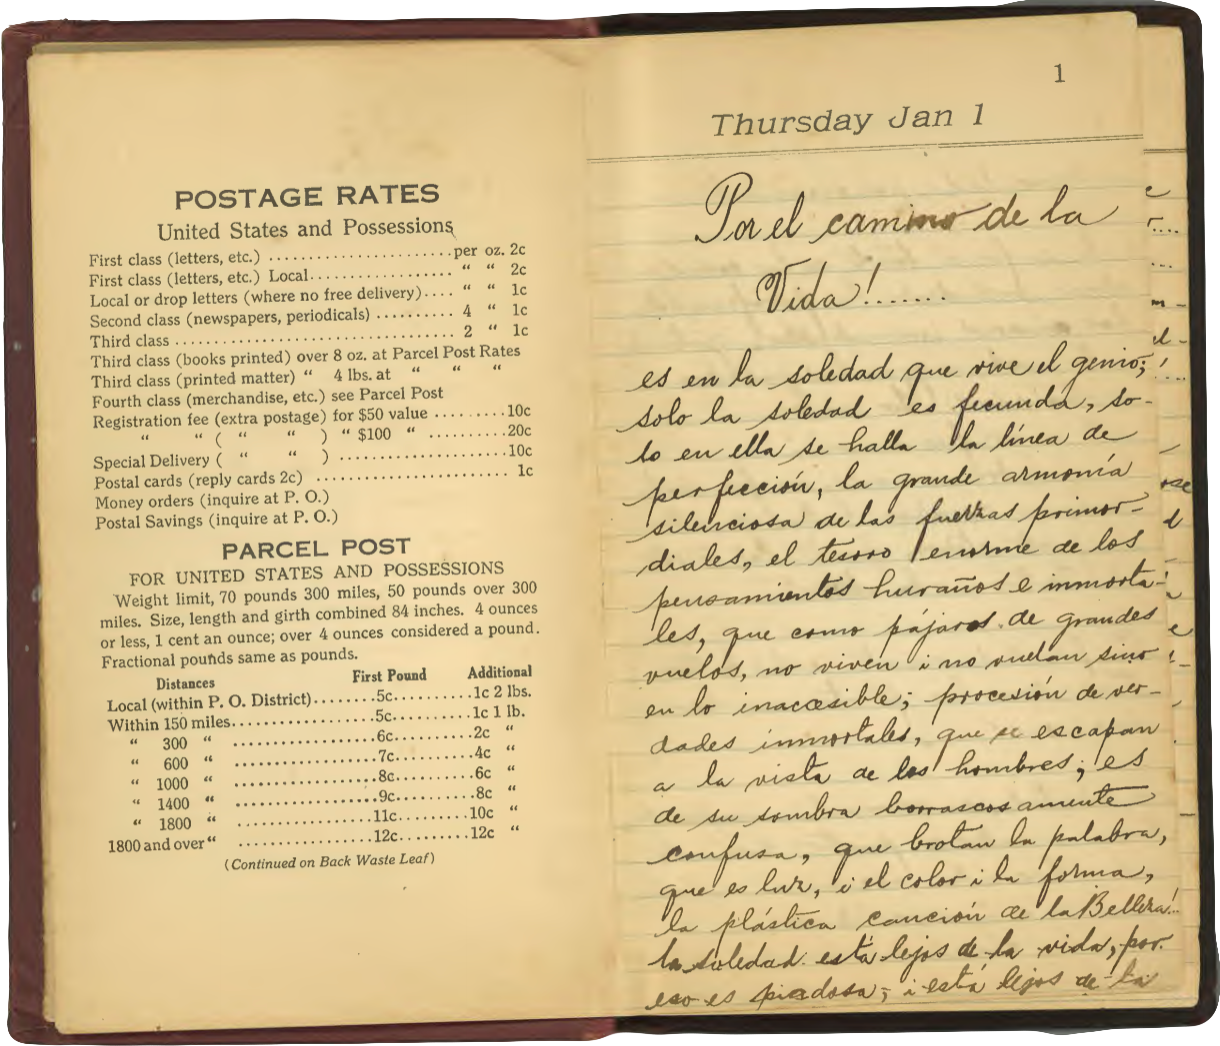 POSTAGE RATES
United States and Possessions
First class (letters, etc.) ........................per oz. 2c
First class (letters, etc.) Local................... “ “ 2c
Local or drop letters (where no free delivery).... “ “ 1c
Second class (newspapers, periodicals) .......... 4 “ 1c
Third class ..................................... 2 “ 1c
Third class (books printed) over 8 oz. at Parcel Post Rates
Third class (printed matter) “ 4 lbs. at “ “ “
Fourth class (merchandise, etc.) see Parcel Post
Registration fee (extra postage) for $50 value .........10c
“ “ ( “ “ ) “ $100 “ ..........20c
Special Delivery ( “ “ ) ......................10c
Postal cards (reply cards 2c) ............................ 1c
Money orders (inquire at P. O.)
Postal Savings (inquire at P. O.)
PARCEL POST
FOR UNITED STATES AND POSSESSIONS
Weight limit, 70 pounds 300 miles, 50 pounds over 300
miles. Size, length and girth combined 84 inches. 4 ounces
or less, 1 cent an ounce; over 4 ounces considered a pound.
Fractional pounds same as pounds.
Distances First Pound Additional
Local (within P. O. District)........5c..........1c 2 lbs.
Within 150 miles...................5c..........1c 1 lb.
“ 300 “ ...................6c..........2c “
“ 600 “ ...................7c..........4c “
“ 1000 “ ...................8c..........6c “
“ 1400 “ ...................9c..........8c “
“ 1800 “ ...................11c.........10c “
1800 and over “ ...................12c.........12c “
(Continued on Back Waste Leaf)
1
Thursday Jan 1
Por el camino de la
Vida!.......
es en la soledad que vive el genio;
solo la soledad es fecunda, so-
lo en ella se halla la línea de
perfección, la grande armonía
silenciosa de las fuerzas primor-
diales, el tesoro enorme de los
pensamientos huraños e inmorta-
les, que como pájaros de grandes
vuelos, no viven i no vuelan sino
en lo inaccesible; procesión de ver-
dades inmortales, que se escapan
a la vista de los hombres; es
de su sombra borrascosamente
confusa, que brotan la palabra,
que es luz, i el color i la forma,
la plástica canción de la Belleza!..
la soledad está lejos de la vida, por
eso es piadosa; i está lejos de la